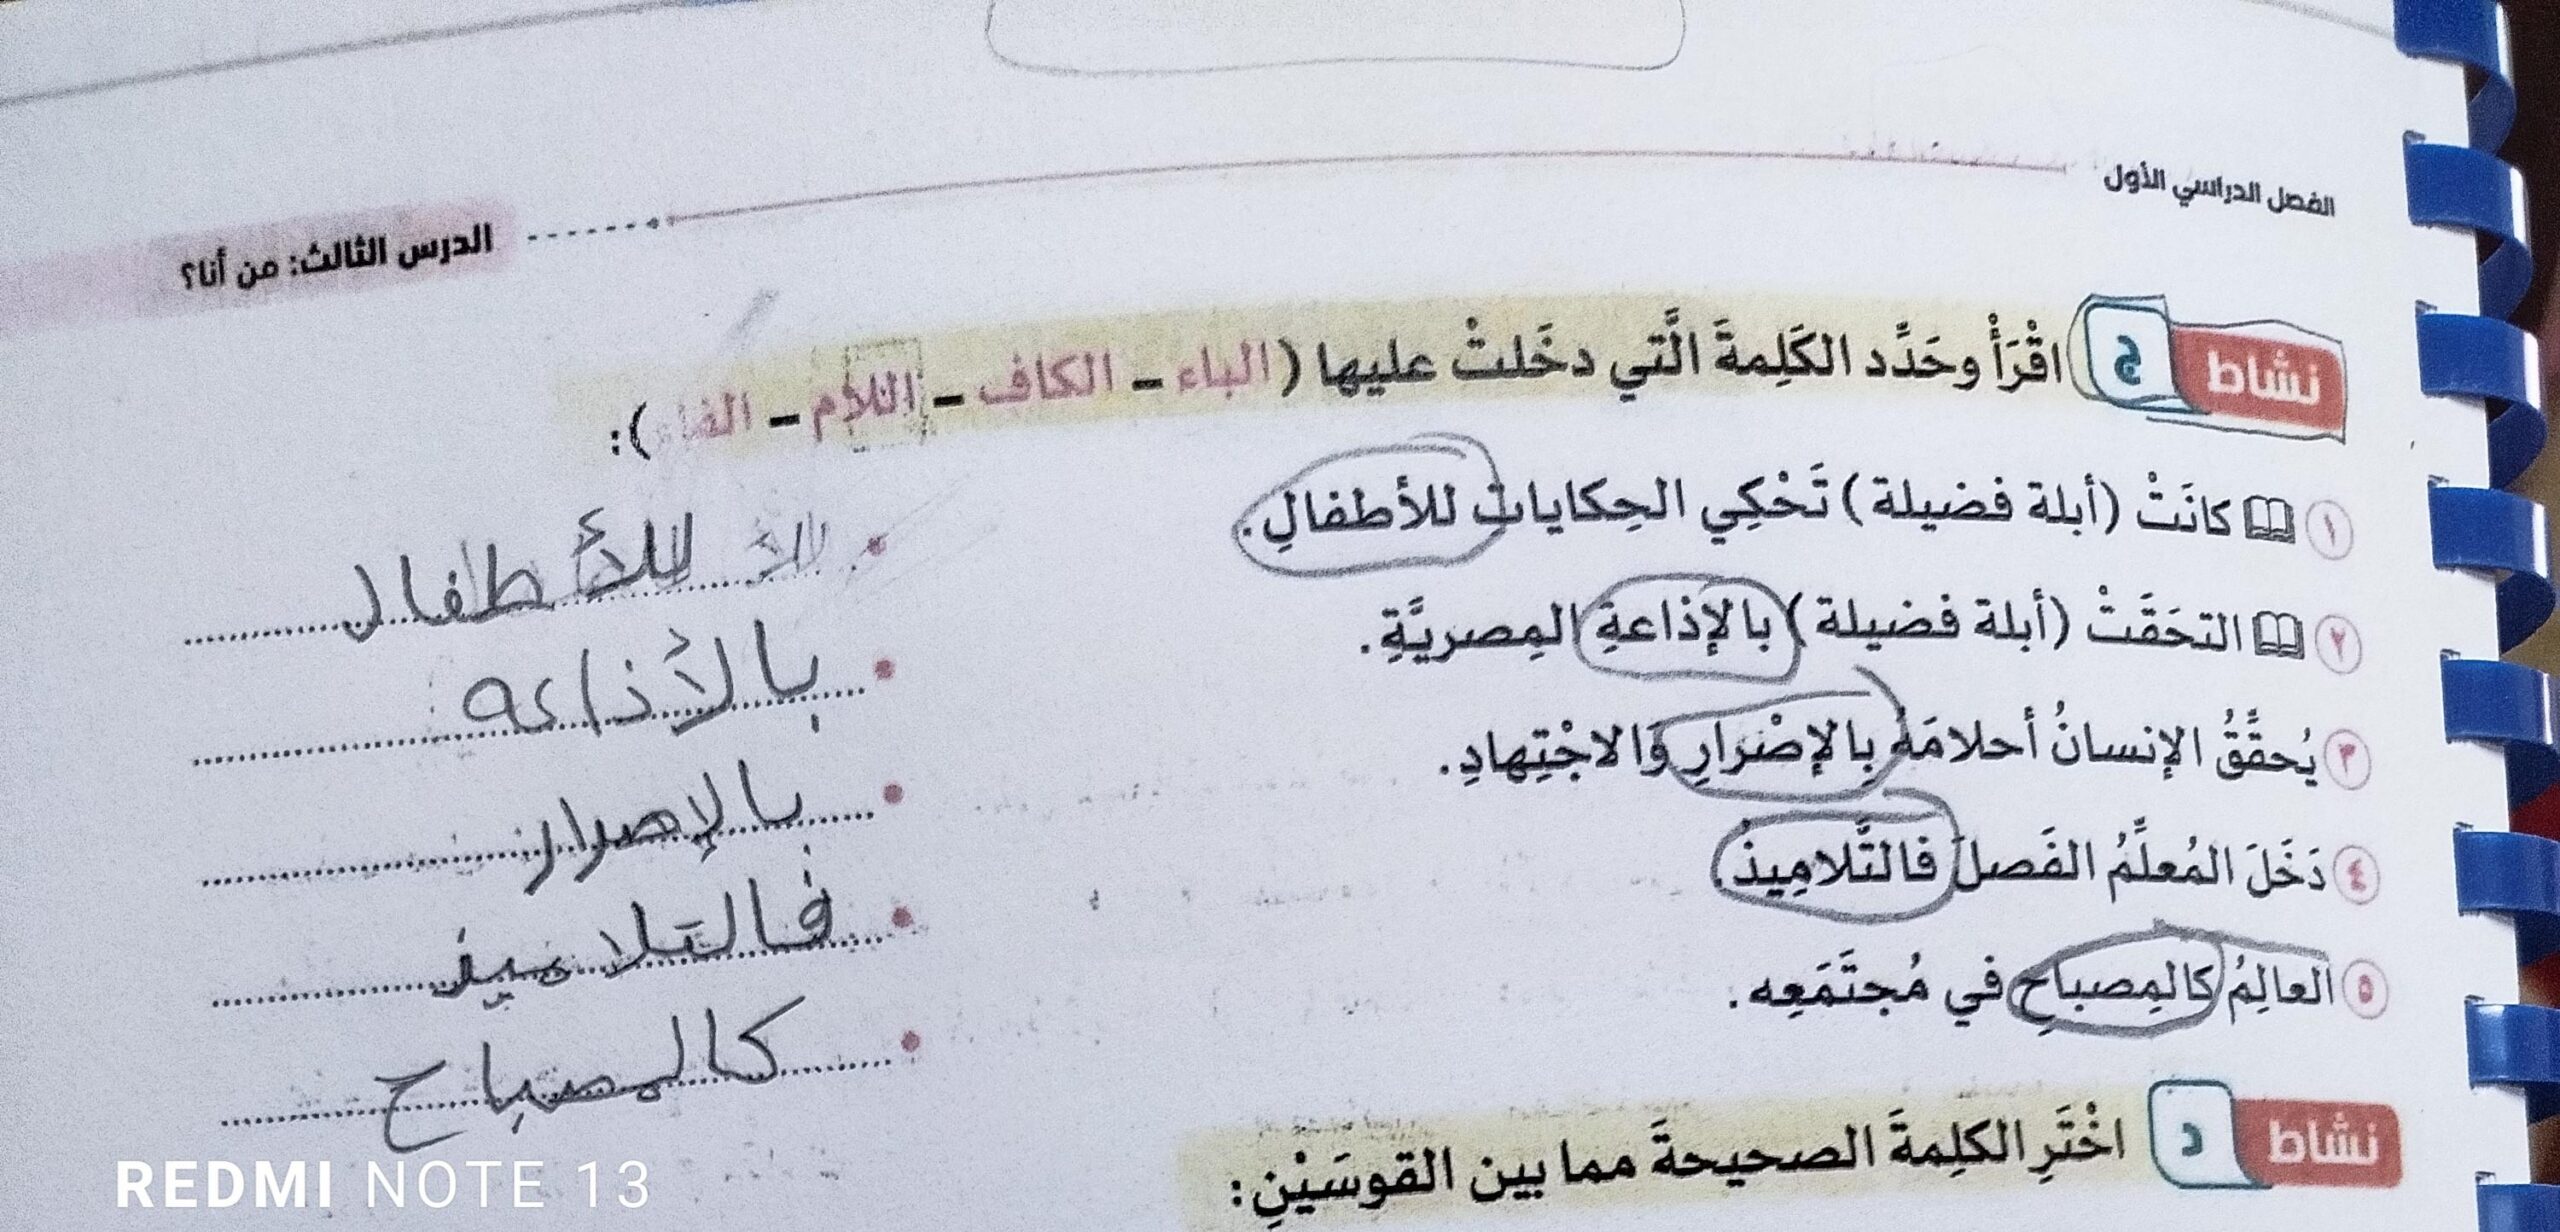 الفصل الدراسي الأول
الدرس الثالث: من أنا؟
نشاط ج اقْرَأْ وحَدِّد الكَلِمةَ الَّتي دخَلتْ عليها (الباء - الكاف - اللام - الفاء):
١ كانَتْ (أبلة فضيلة) تَحْكِي الحِكايات للأطفالِ.
للأطفال
٢ التحَقَتْ (أبلة فضيلة) بالإذاعةِ المِصريَّةِ.
بالأذاعه
٣ يُحقِّقُ الإنسانُ أحلامَهُ بِالإصْرارِ وَالاجْتِهادِ.
بالإصرار
٤ دَخَلَ المُعلِّمُ الفَصلَ فالتَّلامِيذُ.
فالتلاميذ
٥ العالِمُ كَالمِصباحِ في مُجتَمَعِه.
كالمصباح
نشاط د اخْتَرِ الكلِمةَ الصحيحةَ مما بين القوسَيْنِ:
REDMI NOTE 13